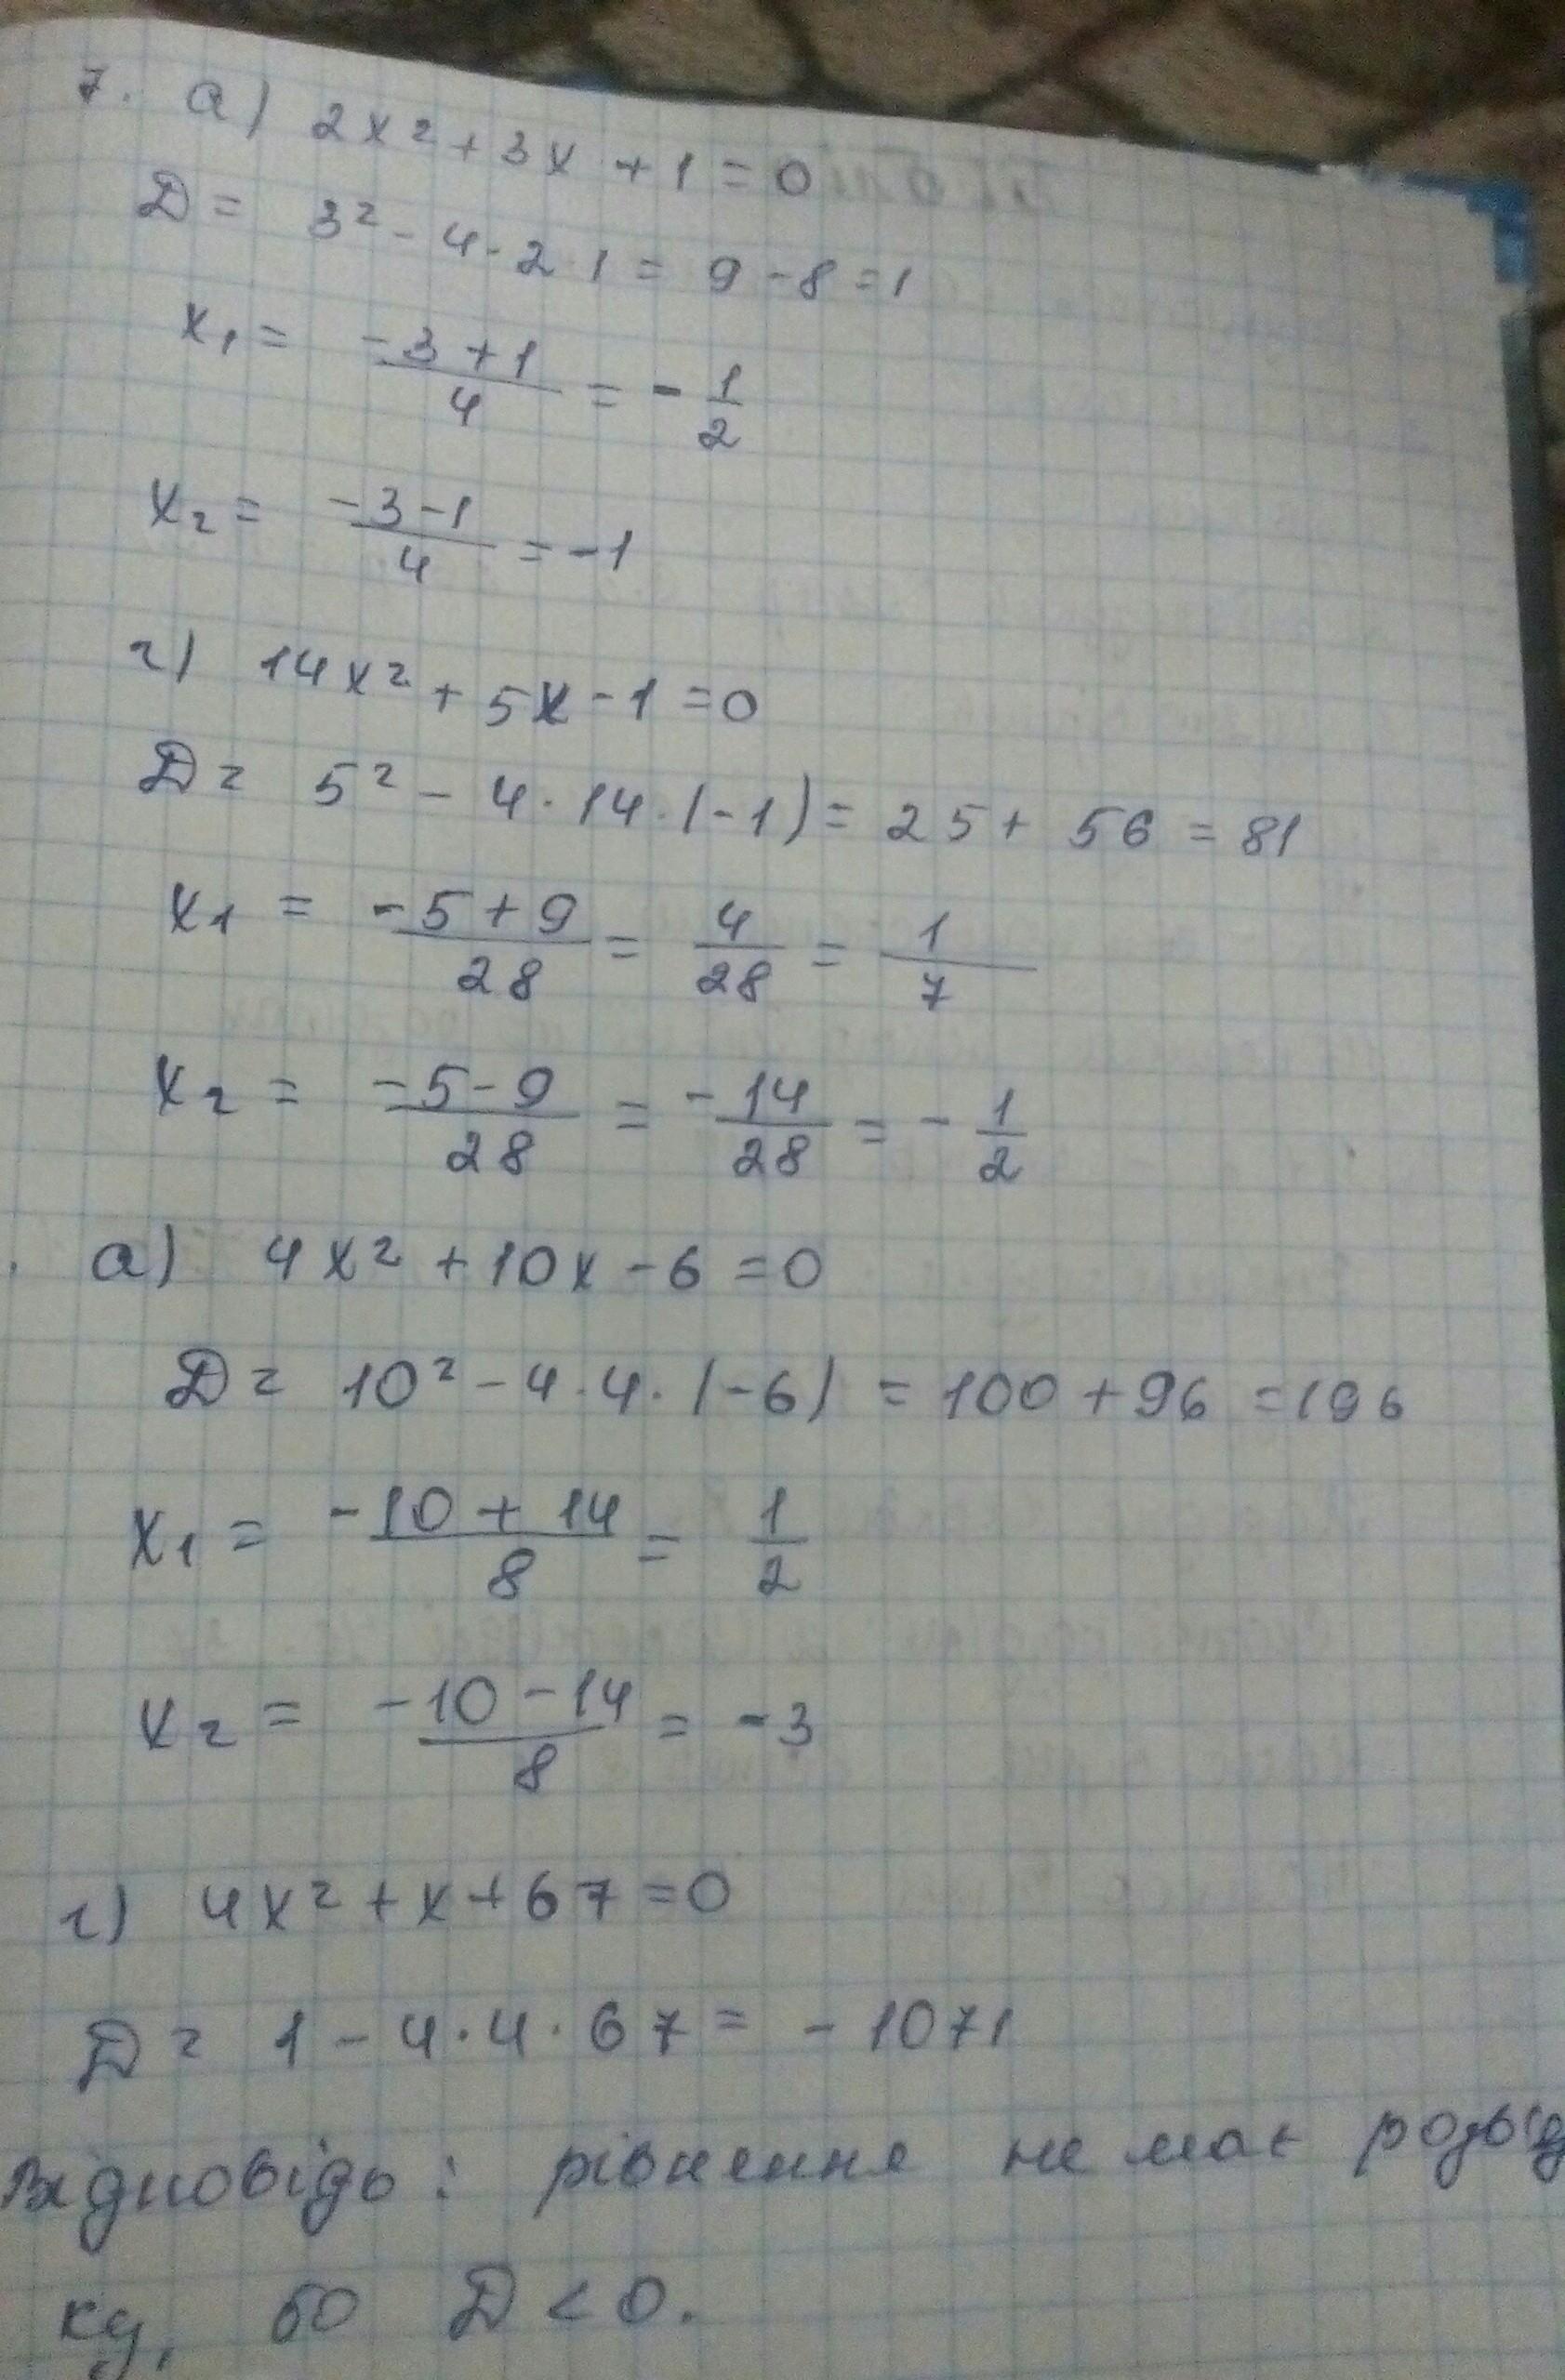 7. а) 2x² + 3x + 1 = 0
D = 3² - 4 · 2 · 1 = 9 - 8 = 1
x₁ = (-3 + 1)/4 = - 1/2
x₂ = (-3 - 1)/4 = -1
г) 14x² + 5x - 1 = 0
D = 5² - 4 · 14 · (-1) = 25 + 56 = 81
x₁ = (-5 + 9)/28 = 4/28 = 1/7
x₂ = (-5 - 9)/28 = -14/28 = - 1/2
а) 4x² + 10x - 6 = 0
D = 10² - 4 · 4 · (-6) = 100 + 96 = 196
x₁ = (-10 + 14)/8 = 1/2
x₂ = (-10 - 14)/8 = -3
г) 4x² + x + 67 = 0
D = 1 - 4 · 4 · 67 = - 1071
Відповідь: рівняння не має розв'яз
ку, бо D < 0.